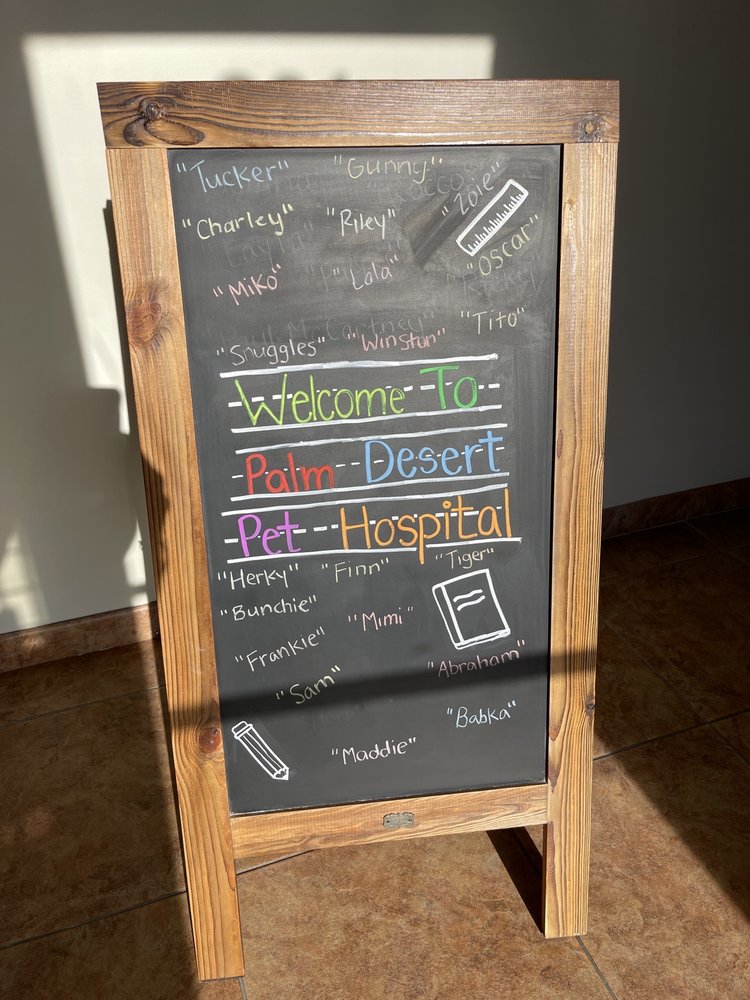 "Tucker" "Gunny"
"Zoie"
"Charley" "Riley"
"Oscar"
"Miko" "Lala"
"Tito"
"Snuggles" "Winston"
Welcome To
Palm Desert
Pet Hospital
"Herky" "Finn" "Tiger"
"Bunchie"
"Mimi"
"Frankie"
"Abraham"
"Sam"
"Babka"
"Maddie"